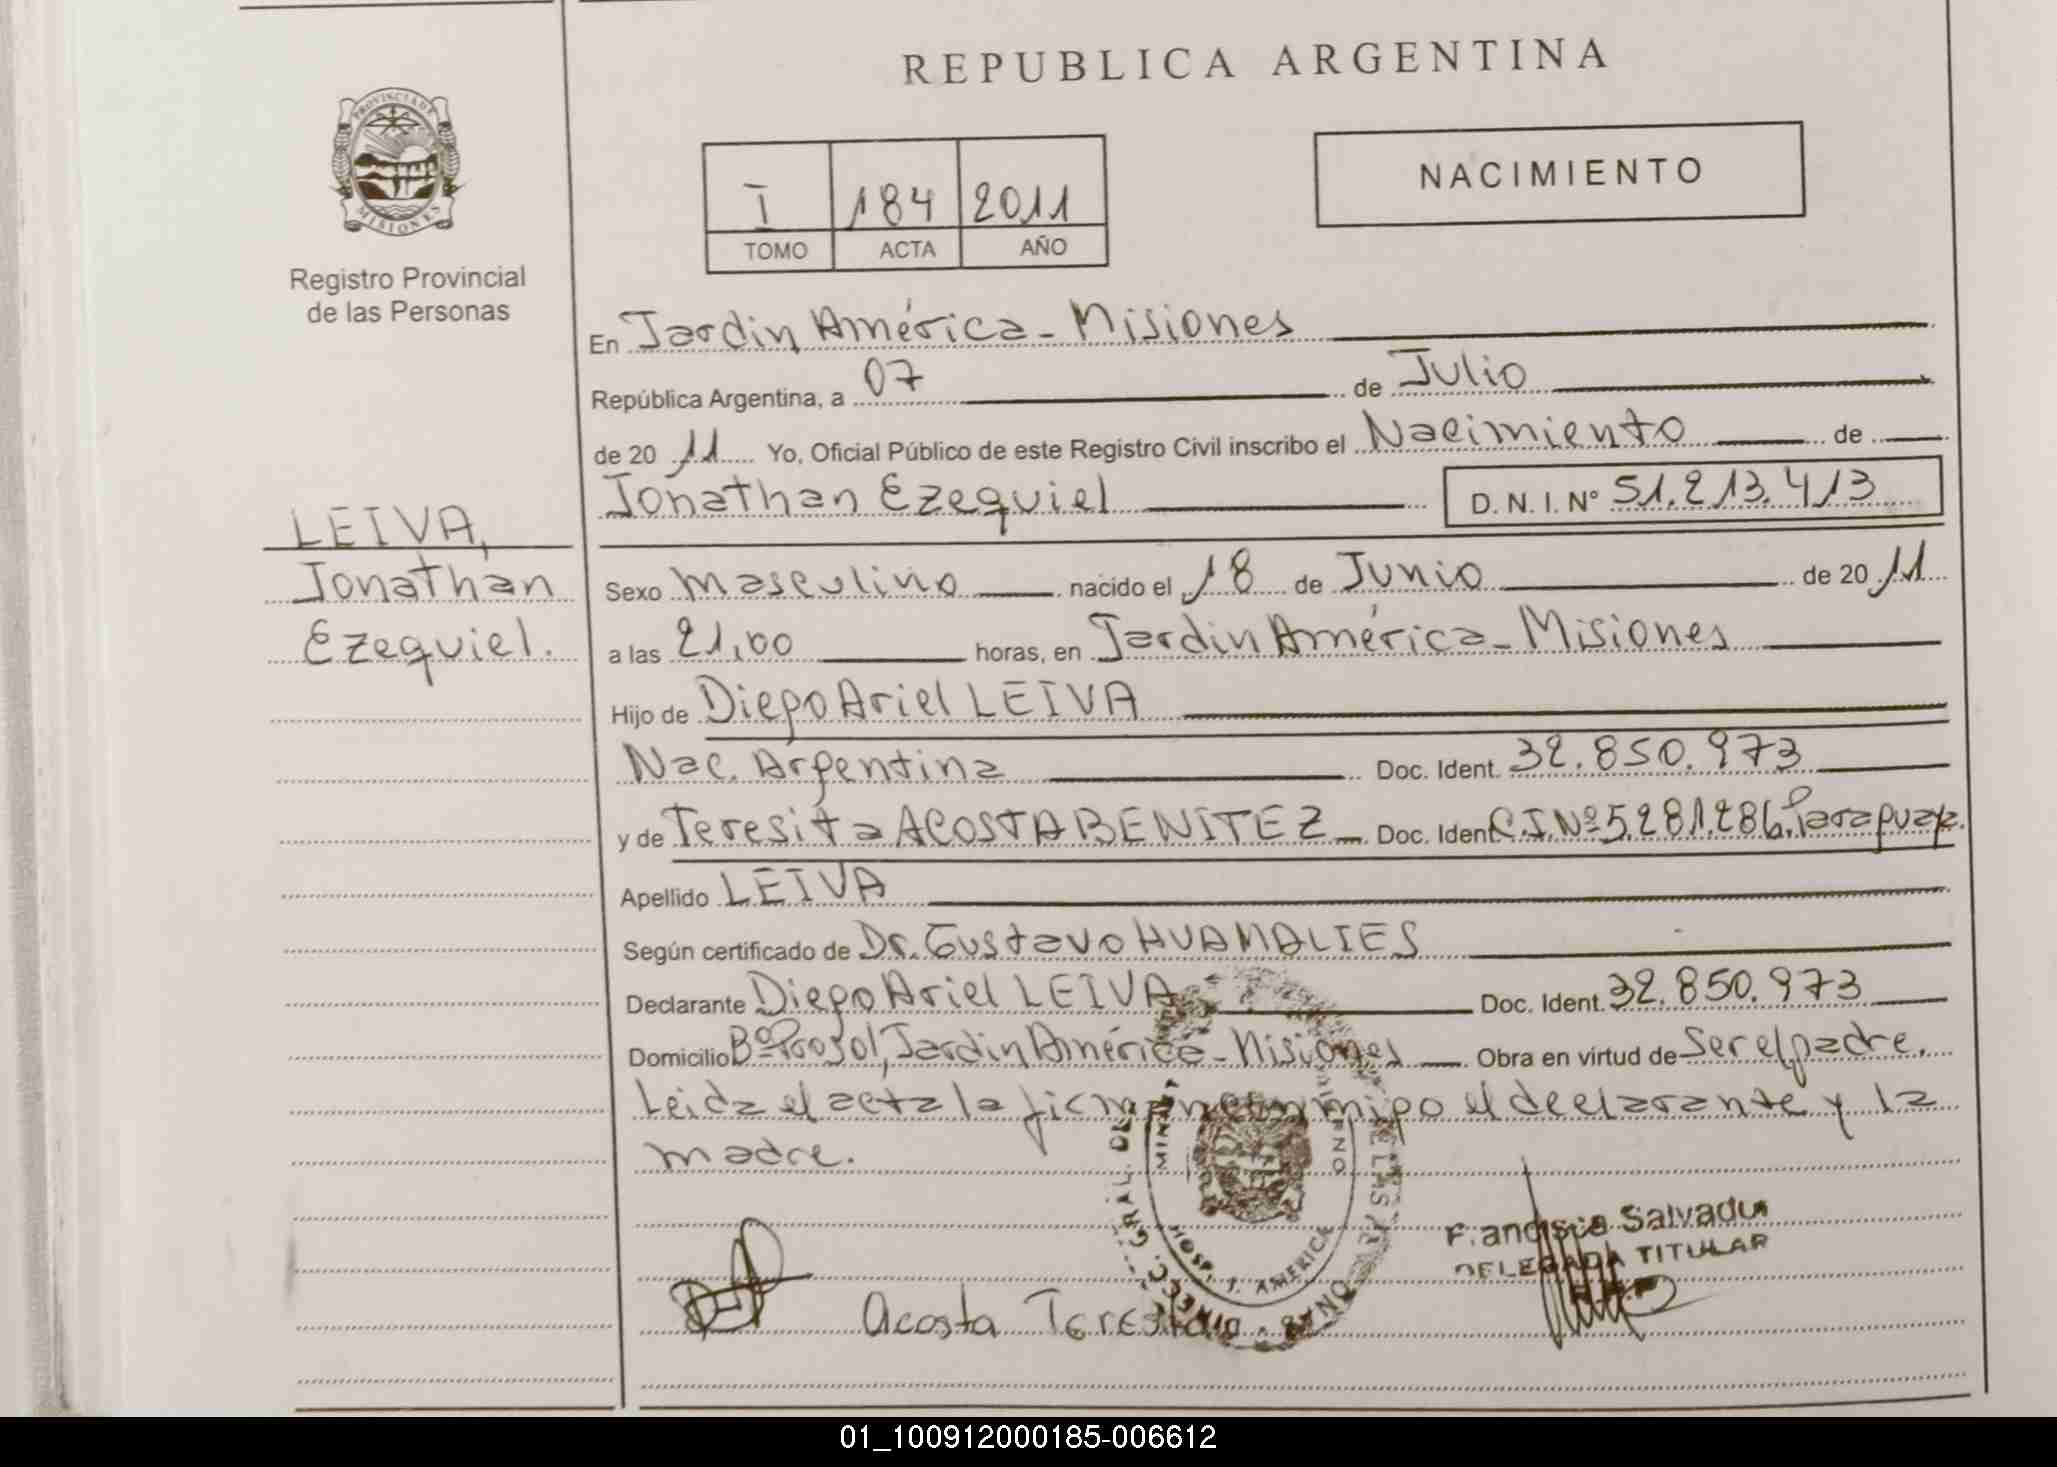 REPUBLICA ARGENTINA
PROVINCIA DE
MISIONES
Registro Provincial
de las Personas
NACIMIENTO
I 184 2011
TOMO ACTA AÑO
LEIVA,
Jonathan
Ezequiel.
En Jardin América - Misiones
República Argentina, a 07 de Julio
de 20 11 Yo, Oficial Público de este Registro Civil inscribo el Nacimiento de
Jonathan Ezequiel D. N. I. Nº 51.213.413
Sexo masculino nacido el 18 de Junio de 20 11
a las 21,00 horas, en Jardin América - Misiones
Hijo de Diego Ariel LEIVA
Nac. Argentina Doc. Ident. 32.850.973
y de Teresita ACOSTA BENITEZ Doc. Ident. C.I.Nº 5.281.286. Paraguay.
Apellido LEIVA
Según certificado de Dr. Gustavo HUAMALIES
Declarante Diego Ariel LEIVA Doc. Ident. 32.850.973
Domicilio Bº Prosol, Jardin América - Misiones Obra en virtud de Ser el padre.
Leida el acta la firman conmigo el declarante y la
madre.
HOSP. J. AMERICA
Francisca Salvadur
DELEGADA TITULAR
Acosta Teresita
01_100912000185-006612